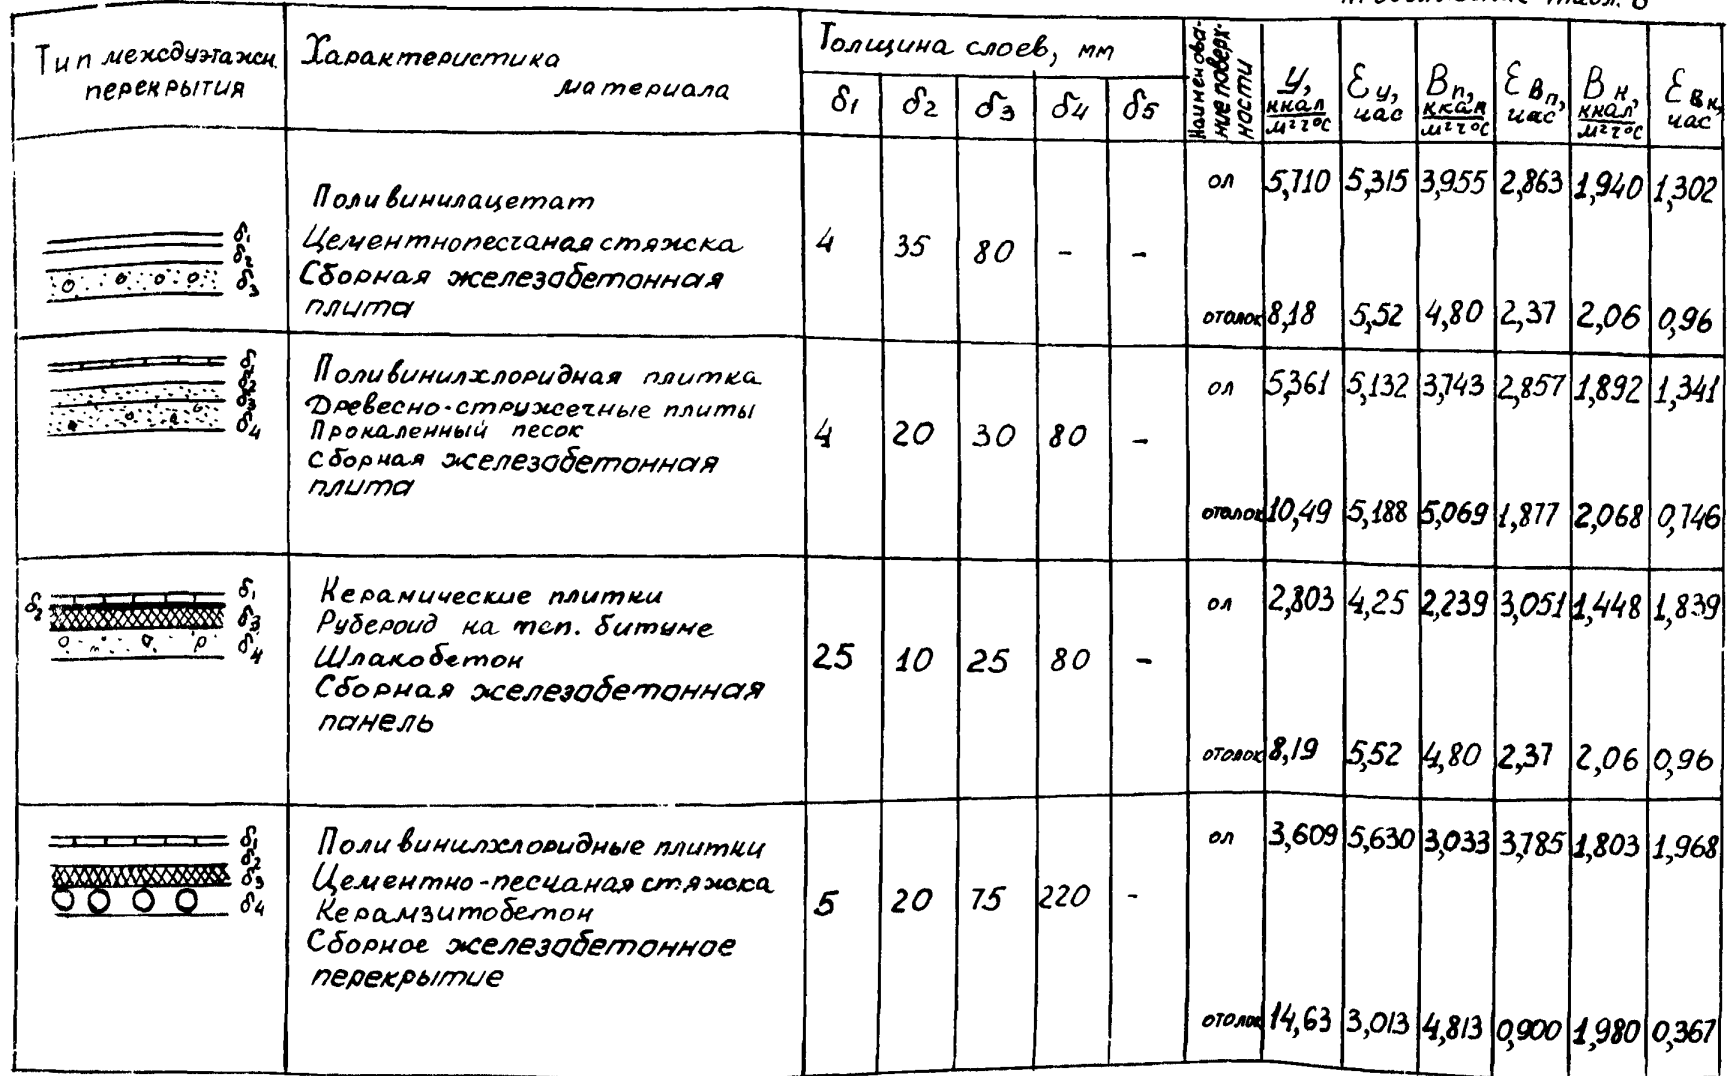 Тип междуэтажн. перекрытия | Характеристика материала | Толщина слоев, мм | Наименование поверхности | У, ккал/м²г°С | Ɛу, час | Вп, ккал/м²г°С | ƐВп, час | Вк, ккал/м²г°С | ƐВк, час
δ1 | δ2 | δ3 | δ4 | δ5
δ1 δ2 δ3
Поливинилацетат
Цементнопесчаная стяжка
Сборная железабетонная
плита
4 | 35 | 80 | - | -
ол | 5,710 | 5,315 | 3,955 | 2,863 | 1,940 | 1,302
отолок | 8,18 | 5,52 | 4,80 | 2,37 | 2,06 | 0,96
δ1 δ2 δ3 δ4
Поливинилхлоридная плитка
Древесно-стружечные плиты
Прокаленный песок
сборная железабетонная
плита
4 | 20 | 30 | 80 | -
ол | 5,361 | 5,132 | 3,743 | 2,857 | 1,892 | 1,341
отолок | 10,49 | 5,188 | 5,069 | 1,877 | 2,068 | 0,746
δ1 δ2 δ3 δ4
Керамические плитки
Рубероид на теп. битуме
Шлакобетон
Сборная железабетанная
панель
25 | 10 | 25 | 80 | -
ол | 2,803 | 4,25 | 2,239 | 3,051 | 1,448 | 1,839
отолок | 8,19 | 5,52 | 4,80 | 2,37 | 2,06 | 0,96
δ1 δ2 δ3 δ4
Поливинилхлоридные плитки
Цементно-песчаная стяжка
Керамзитобетон
Сборное железабетонное
перекрытие
5 | 20 | 75 | 220 | -
ол | 3,609 | 5,630 | 3,033 | 3,785 | 1,803 | 1,968
отолок | 14,63 | 3,013 | 4,813 | 0,900 | 1,980 | 0,367